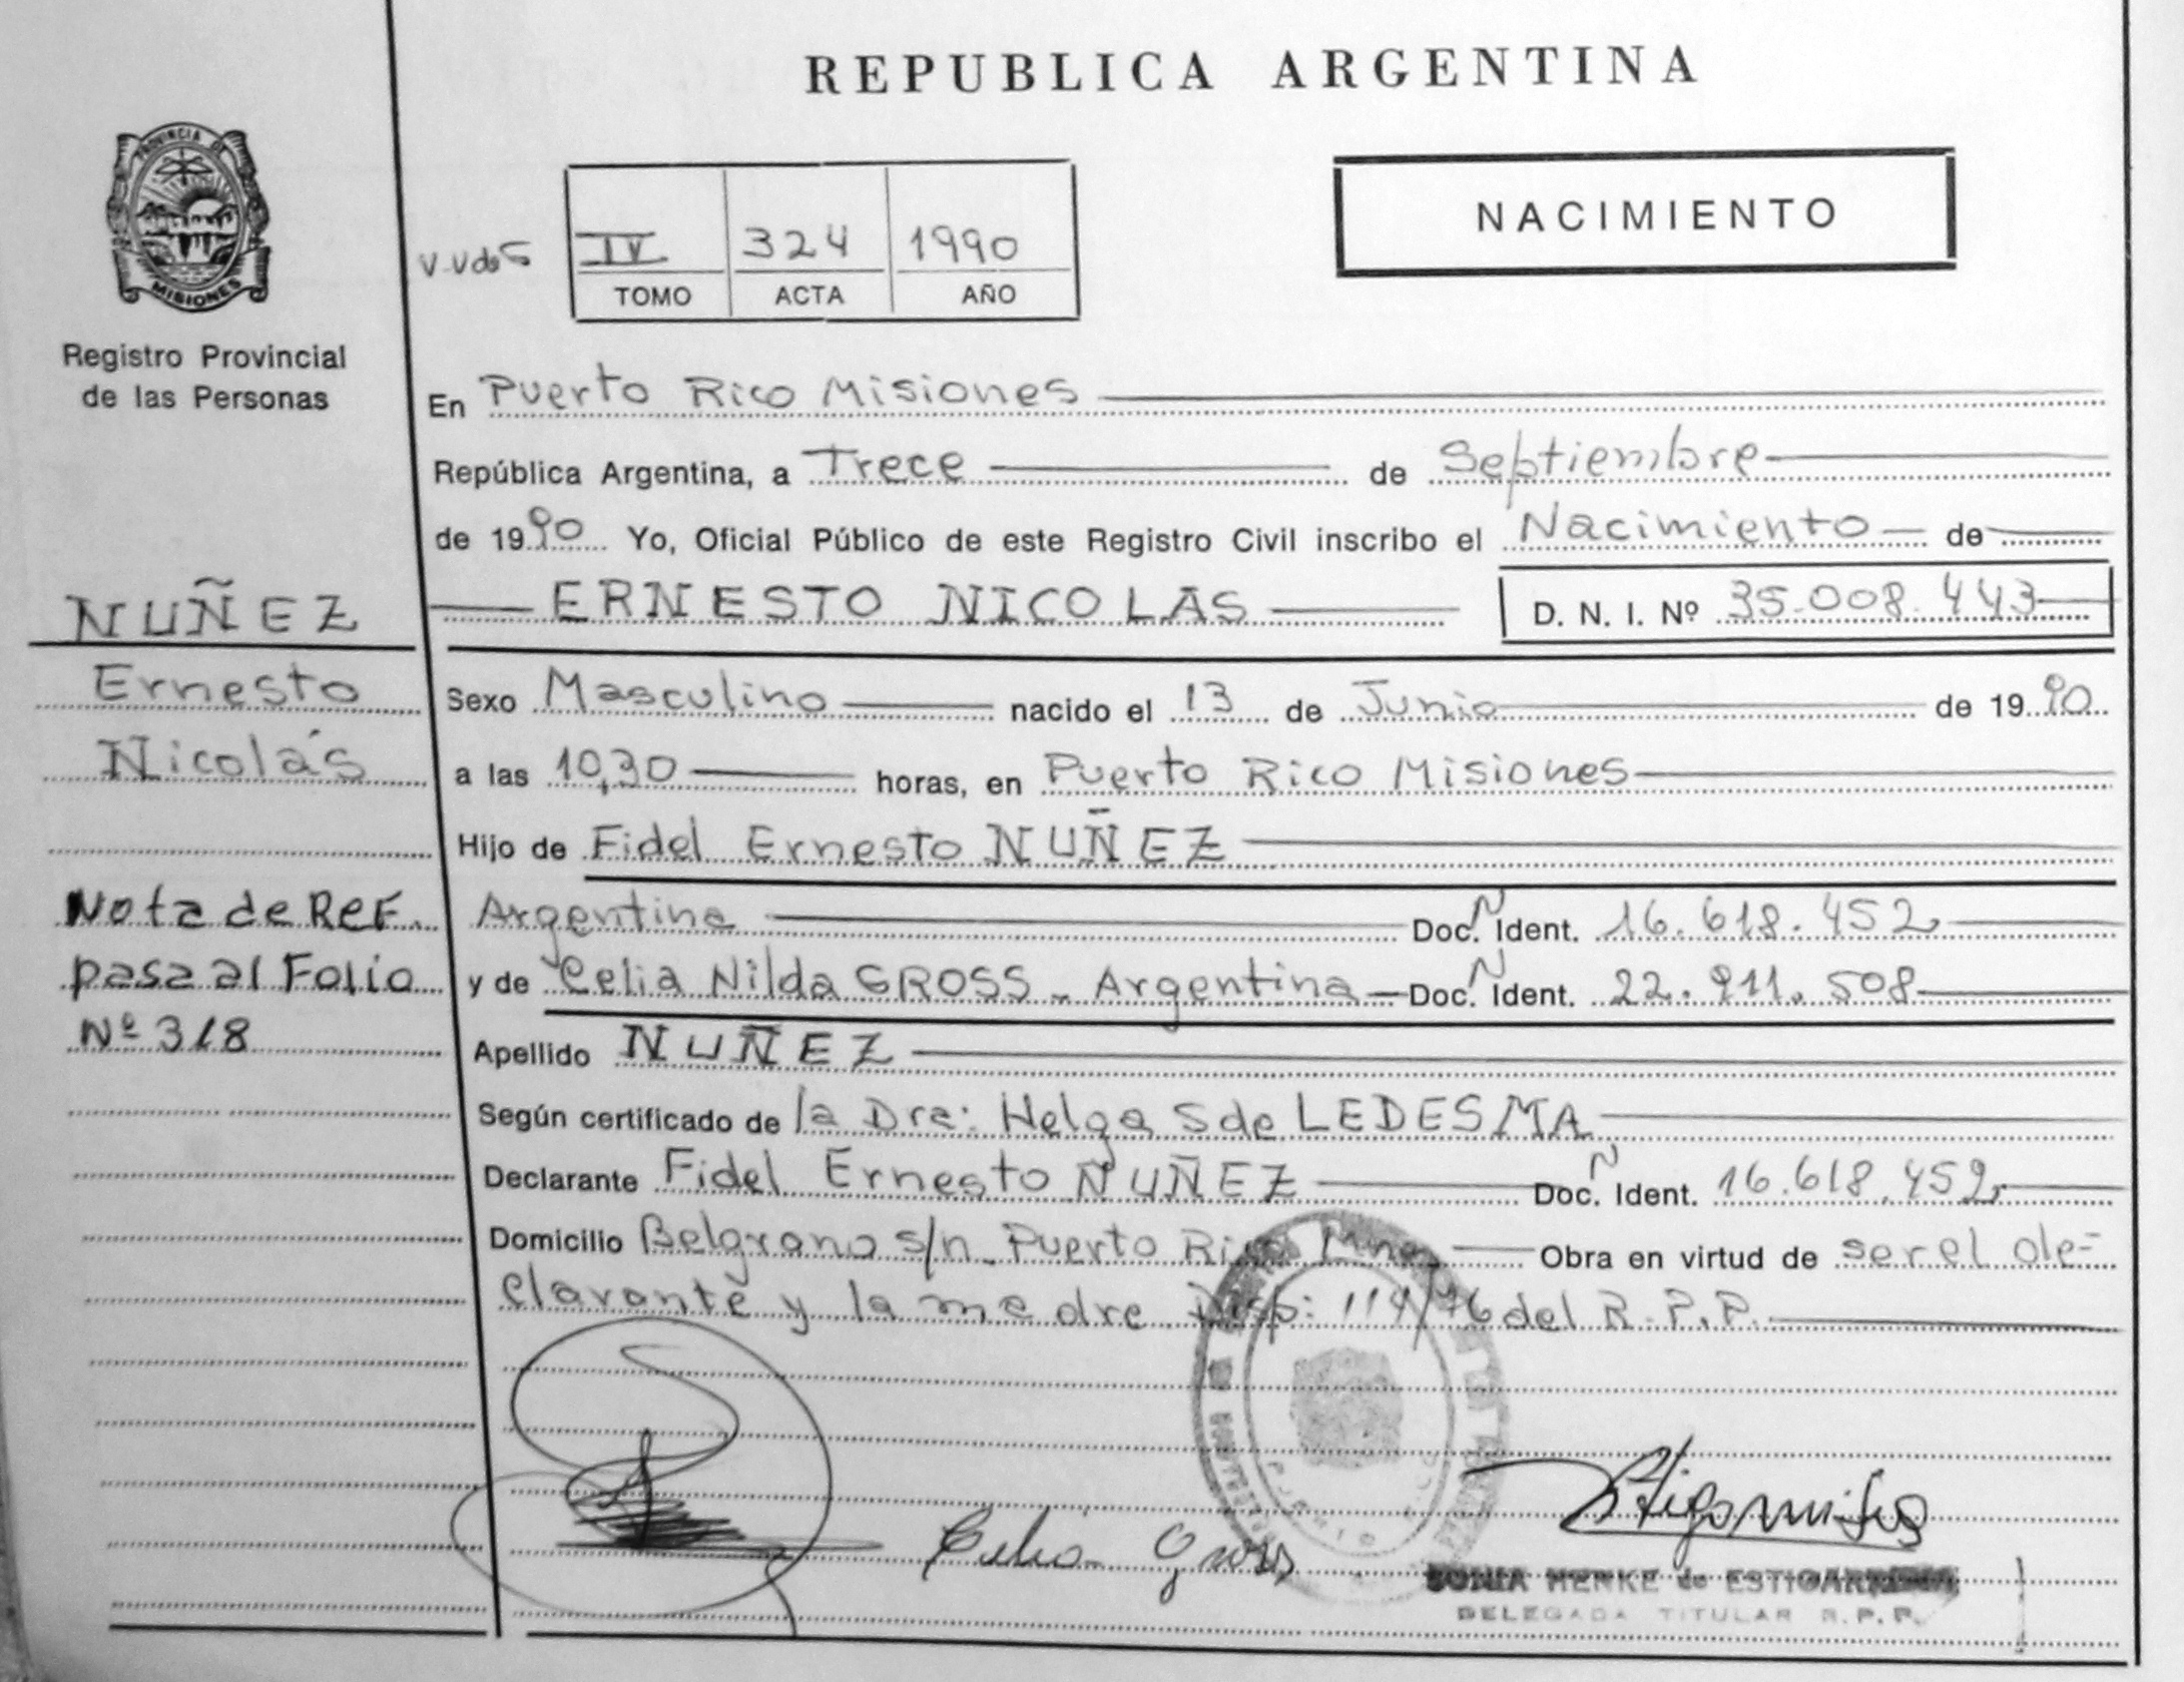 REPUBLICA ARGENTINA
PROVINCIA DE
MISIONES
Registro Provincial
de las Personas
NACIMIENTO
IV 324 1990
TOMO ACTA AÑO
En Puerto Rico Misiones
República Argentina, a Trece de Septiembre
de 1990 Yo, Oficial Público de este Registro Civil inscribo el Nacimiento de
ERNESTO NICOLAS D. N. I. Nº 35.008.443
NUÑEZ
Ernesto
Nicolás
Sexo Masculino nacido el 13 de Junio de 1990
a las 10,30 horas, en Puerto Rico Misiones
Hijo de Fidel Ernesto NUÑEZ
Argentina Doc. Ident. 16.618.452
y de Celia Nilda GROSS - Argentina Doc. Ident. 22.911.508
Nota de REF.
pasa al Folio
Nº 318
Apellido NUÑEZ
Según certificado de la Dra: Helga S de LEDESMA
Declarante Fidel Ernesto NUÑEZ Doc. Ident. 16.618.452
Domicilio Belgrano s/n Puerto Rico Mnes Obra en virtud de ser el de-
clarante y la madre Disp: 114/76 del R.P.P.
Celia Gross
SONIA HENKE de ESTIGARRIBIA
DELEGADA TITULAR R.P.P.